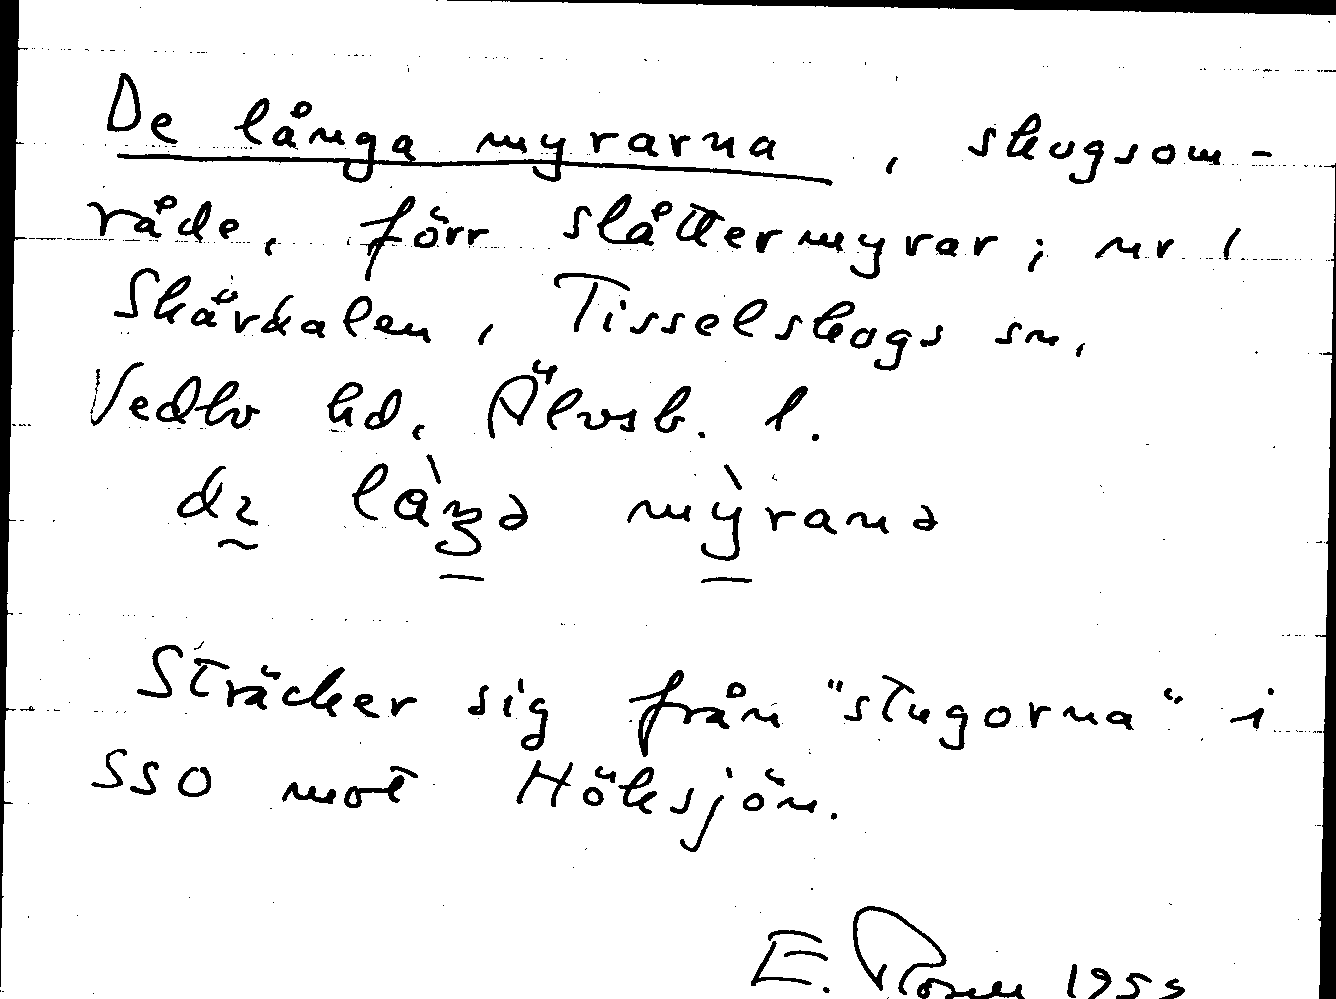 De långa myrarna, skogsom-
råde, förr slåttermyrar; nr 1
Skårkalen, Tisselskogs sn,
Vedbo hd, Älvsb. l.
Sträcker sig från "stugorna" i
SSO mot Höksjön.
E. 1955